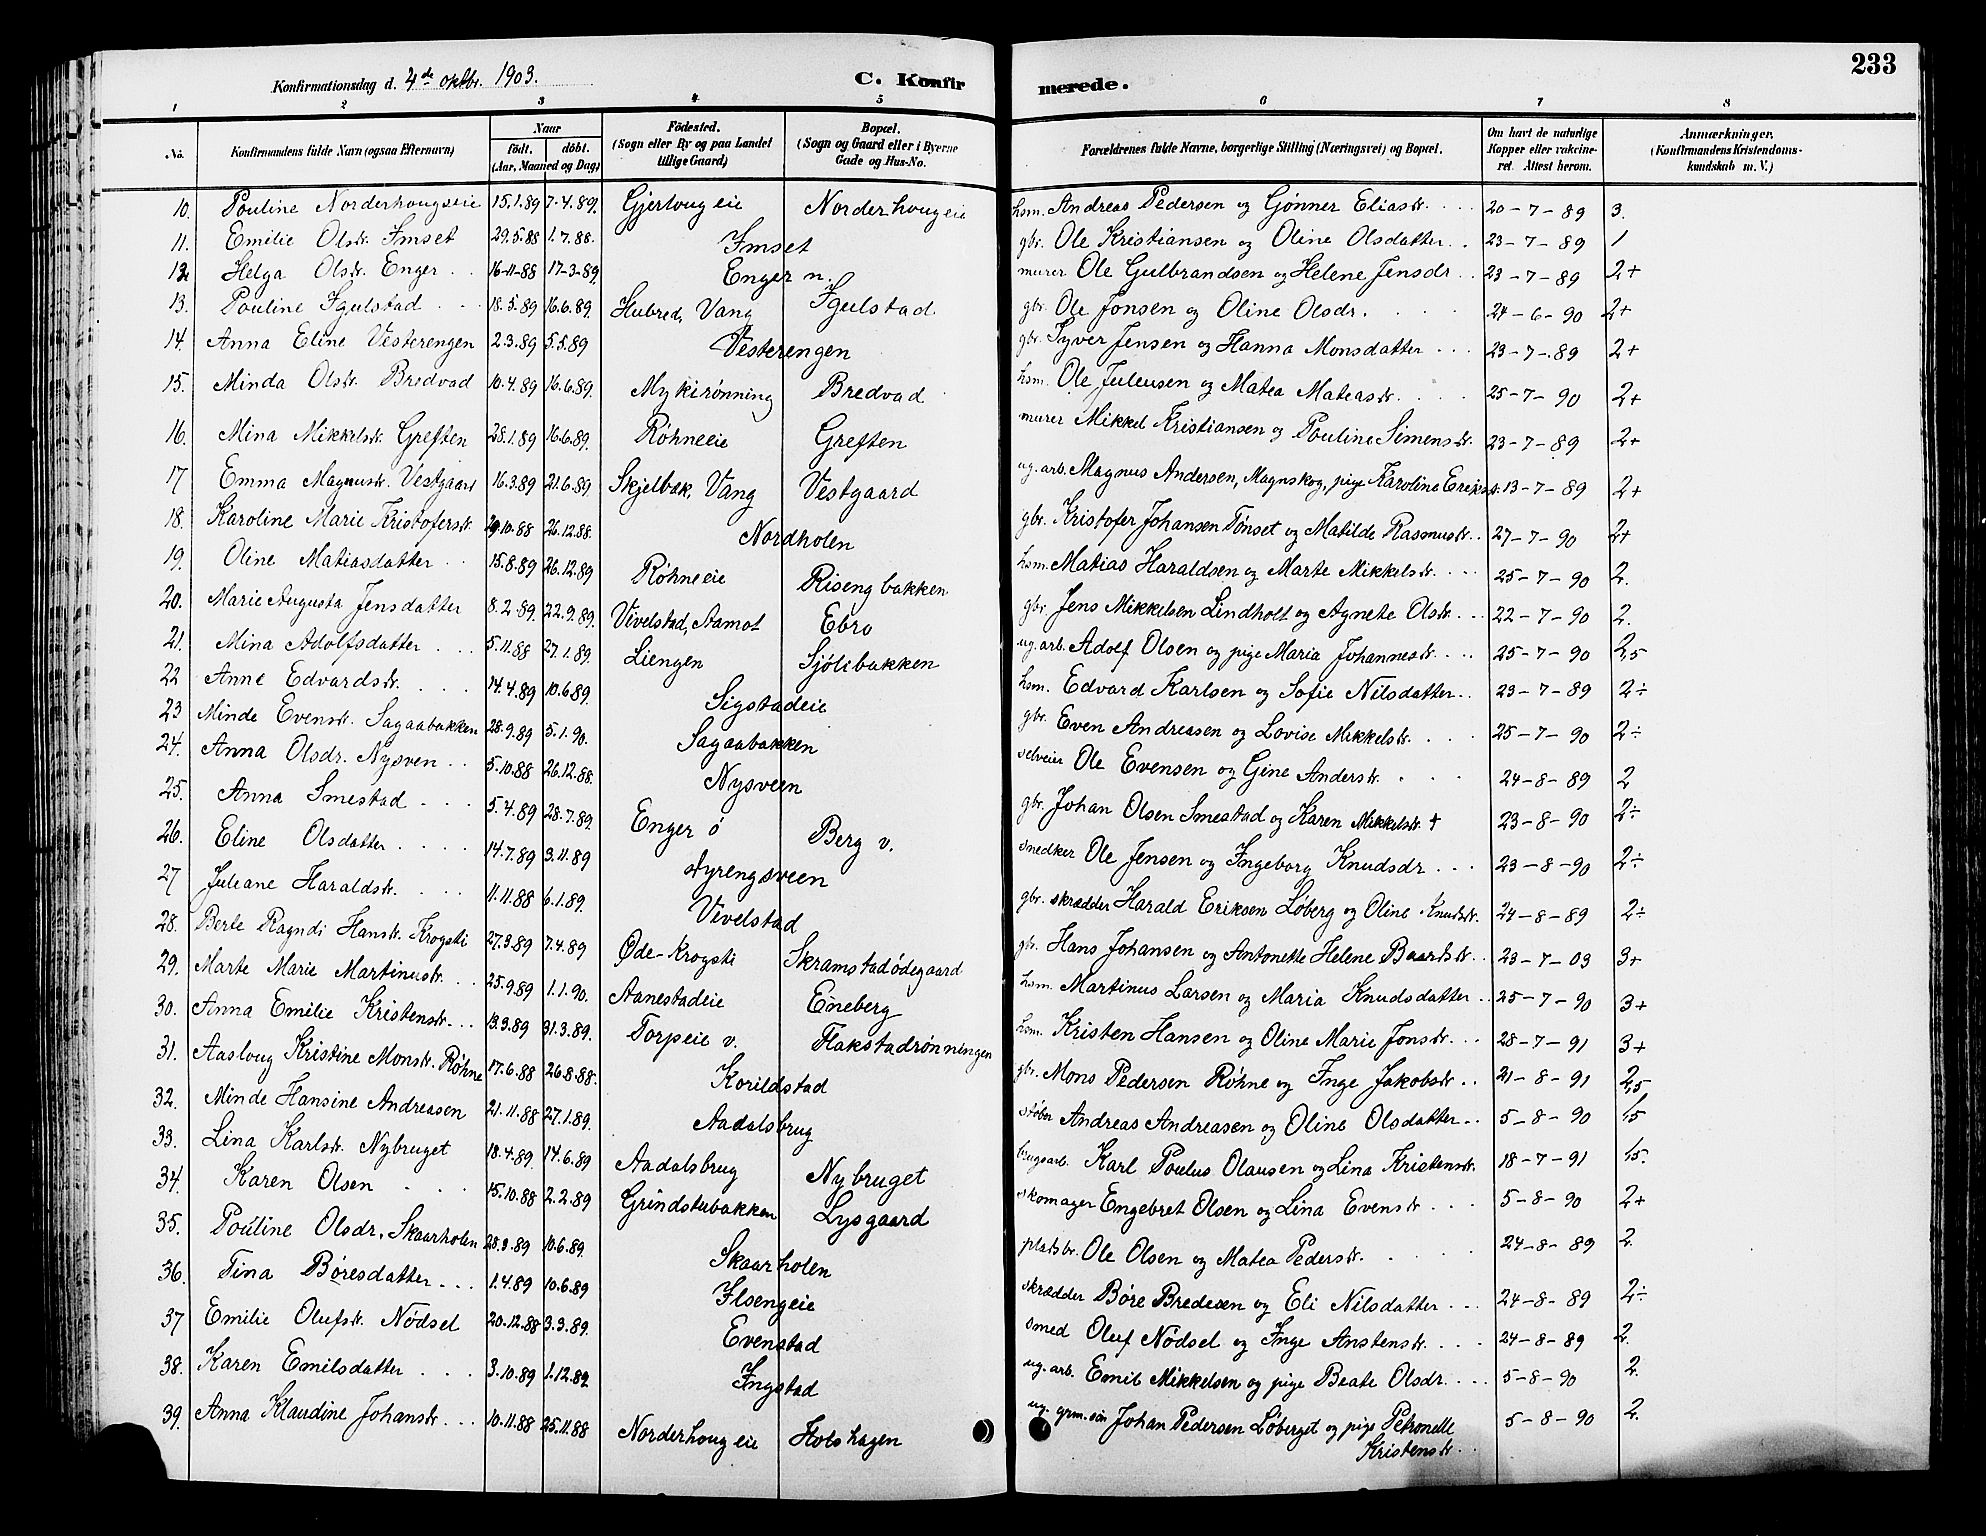 233
Konfirmationsdag d. 4de oktbr. 1903. C. Konfir merede.
1 2 3 4 5 6 7 8
No. Konfirmandens fulde Navn (ogsaa Efternavn) Naar födt. döbt. (Aar, Maaned og Dag) Födested. (Sogn eller By og paa Landet tillige Gaard) Bopæl. (Sogn og Gaard eller i Byerne Gade og Hus-No. Forældrenes fulde Navne, borgerlige Stilling (Næringsvei) og Bopæl. Om havt de naturlige Kopper eller vakcineret. Attest herom. Anmærkninger. (Konfirmandens Kristendomskundskab m. V.)
10. Pouline Norderhougseie 15.1.89 7.4.89. Gjerlougeie Norderhougeie hsm. Andreas Pedersen og Gjønner Eliasdr. 20-7-89 3.
11. Emilie Olsdr. Imset 29.5.88 1.7.88. Imset gbr. Ole Kristiansen og Oline Olsdatter 23-7-89 1
12. Helga Olsdr. Enger 16-11-88 17-3-89. Enger n. murer Ole Gulbrandsen og Helene Jensdr. 23-7-89 2+
13. Pouline Igulstad 18.5.89 16.6.89. Hubred, Vang Igulstad gbr. Ole Jonsen og Oline Olsdr. 24-6-90 2+
14. Anna Eline Vesterengen 2.3.89 5.5.89 Vesterengen gbr. Syver Jensen og Hanna Monsdatter 23-7-89 2+
15. Minda Olsdr. Bredvad 10.4.89 16.6.89. Mykirønning Bredvad hsm. Ole Juleusen og Matea Mateasdr. 25-7-90 2+
16. Mina Mikkelsdr. Greften 28.1.89 16.6.89. Röhneeie Greften murer Mikkel Kristiansen og Pouline Simensdr. 23-7-89 2+
17 Emma Magnusdr. Vestgaard 16.3.89 21.6.89. Skjelbæk, Vang Vestgaard ug. arb. Magnus Andersen, Magnskog, pige Karoline Eriksdr. 13-7-89 2+
18. Karoline Marie Kristofersdr. 29.10.88 26.12.88. Nordholen gbr. Kristofer Johansen Tønset og Matilde Rasmusdr. 27-7-90 2+
19. Oline Matiasdatter 15.8.89 26.12.89 Röhneeie Risengbakken hsm. Matias Haraldsen og Marte Mikkelsdr. 25-7-90 2.
20. Marie Augusta Jensdatter 8.2.89. 22.9.89. Vivelstad, Aamot Ebro gbr. Jens Mikkelsen Lindholt og Agnete Olsdr. 22-7-90 2.
21. Mina Adolfsdatter 5.11.88 27.1.89. Liengen Sjölibakken ug. arb. Adolf Olsen og pige Maria Johannesdr. 25-7-90 2,5
22 Anne Edvardsdr. 14.4.89 10.6.89. Sigstadeie hsm. Edvard Karlsen og Sofie Nilsdatter 23-7-89 2÷
23 Minde Evensdr. Sagaabakken 28.9.89 5.1.90. Sagaabakken gbr. Even Andreasen og Lovise Mikkelsdr. 25-7-90 2÷
24. Anna Olsdr. Nysven 5.10.88 26.12.88. Nysveen selveier Ole Evensen og Gine Andersdr. 24-8-89 2
25. Anna Smestad 5.4.89 28.7.89. Enger ö Berg v. gbr. Johan Olsen Smestad og Karen Mikkelsdr. † 23-8-90 2÷
26. Eline Olsdatter 14.7.89 3.11.89 Styrengsveen snedker Ole Jensen og Ingeborg Knudsdr 23-8-90 2÷
27 Juleane Haraldsdr. 11.11.88 6.1.89. Vivelstad gbr. skrædder Harald Eriksen Løberg og Oline Knudsdr. 24-8-89 2÷
28. Berte Ragndi Hansdr. Krogsti 27.3.89 7.4.89 Øde-Krogsti Skramstadödegaard gbr. Hans Johansen og Antonette Helene Baardsdr. 23-7-03 3+
29. Marte Marie Martinusdr. 25.9.89 1.1.90. Aanestadeie Eneberg hsm. Martinus Larsen og Maria Knudsdatter 25-7-90 3+
30. Anna Emilie Kristensdr. 13.3.89 31.3.89. Torpeie v. Flakstadrønningen hsm. Kristen Hansen og Oline Marie Jonsdr. 28-7-91 3+
31. Aasloug Kristine Monsdr. Røhne 17.6.88 26.8.88. Korildstad gbr. Mons Pedersen Røhne og Inge Jakobsdr. 21-8-91 2,5
32. Minde Hansine Andreasen 21.11.88 27.1.89. Aadalsbrug støber Andreas Andreasen og Oline Olsdatter 5-8-90 1,5
33. Lina Karlsdr. Nybruget 18.4.89. 14.6.89 Aadalsbrug Nybruget brugsarb. Karl Poulus Olausen og Lina Kristensdr. 18-7-91 1,5.
34. Karen Olsen 15.10.88 2.2.89 Grindstubakken Lysgaard skomager Engebret Olsen og Lina Evensdr. 5-8-90 2+
35. Pouline Olsdr. Skaarholen 28.3.89 10.6.89. Skaarholen pladsbr. Ole Olsen og Matea Pedersdr. 24-8-89 2.
36. Tina Børesdatter 1.4.89 10.6.89 Ilsengeie skrædder Børe Bredesen og Eli Nilsdatter 24-8-89 2÷
37 Emilie Olufsdr. Nödsel 20.12.88 3.3.89. Evenstad smed Oluf Nödsel og Inge Anstensdr. 24-8-89 2.
38. Karen Emilsdatter 3.10.89 1.12.89. Ingstad ug. arb. Emil Mikkelsen og pige Beate Olsdr. 5-8-90 2.
39. Anna Klaudine Johansdr. 10.11.88 25.11.88 Norderhougeie Holshagen ug. grm. søn Johan Pedersen Løberget og pige Petronelle Kristensdr. 5-8-90 2.